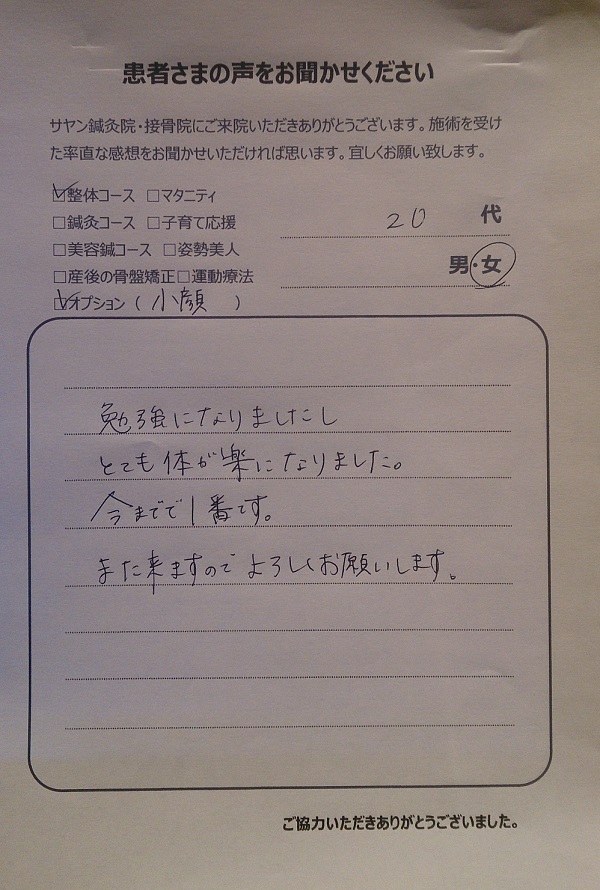 患者さまの声をお聞かせください
サヤン鍼灸院・接骨院にご来院いただきありがとうございます。施術を受け
た率直な感想をお聞かせいただければ思います。宜しくお願い致します。
☑整体コース □マタニティ
□鍼灸コース □子育て応援
20 代
□美容鍼コース □姿勢美人
男・女
□産後の骨盤矯正□運動療法
☑オプション ( 小顔 )
勉強になりましたし
とても体が楽になりました。
今までで1番です。
また来ますのでよろしくお願いします。
ご協力いただきありがとうございました。